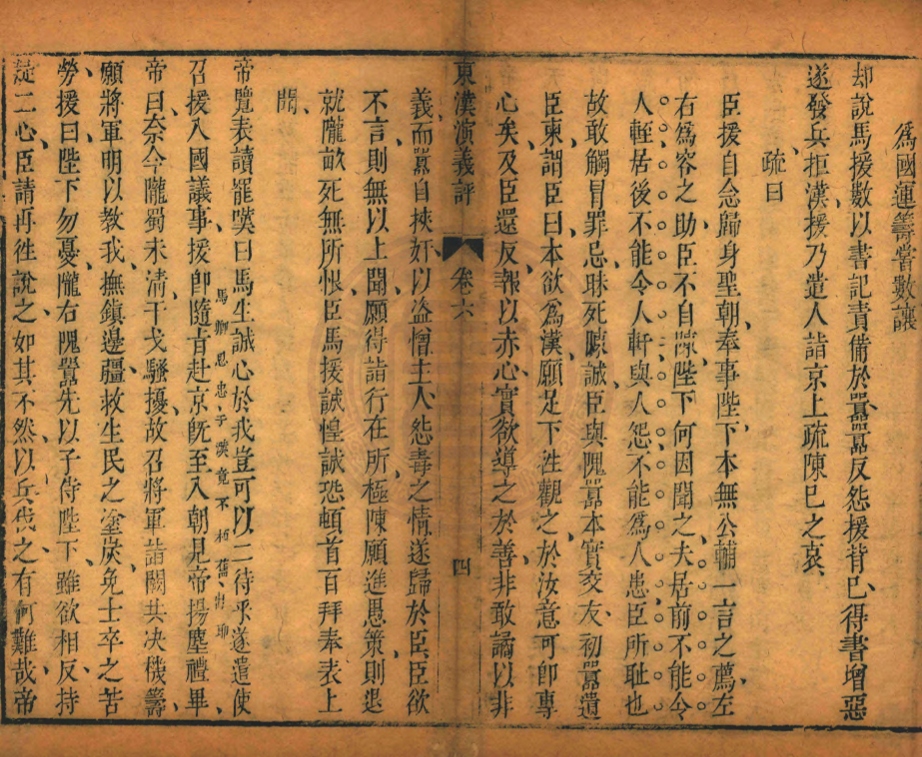 為國運籌嘗數讓
却說馬援數以書記責備於囂囂反怨援背已得書增惡
遂發兵拒漢援乃遣人詣京上疏陳已之哀
疏曰
臣援自念歸身聖朝奉事陛下本無公輔一言之薦左
右為容之助臣不自陳陛下何因聞之夫居前不能令
人輊居後不能令人軒與人怨不能為人患臣所耻也
故敢觸冒罪忌昧死陳誠臣與隗囂本實交友初囂遣
臣東謂臣曰本欲為漢願足下往觀之於汝意可即專
心矣及臣還反報以赤心實欲導之於善非敢譎以非
東漢演義評 卷六 四
義而囂自挾奸以盗憎主人怨毒之情遂歸於臣臣欲
不言則無以上聞願得詣行在所極陳願進愚策則退
就隴畝死無所恨臣馬援誠惶誠恐頓首百拜奉表上
聞
帝覽表讀罷嘆曰馬生誠心於我豈可以二待乎遂遣使
召援入國議事援即隨旨赴京旣至入朝見帝揚塵禮畢
帝曰奈今隴蜀未清干戈騷擾故召將軍詣闕共决機籌
願將軍明以教我撫鎮邊疆救生民之塗炭免士卒之苦
勞援曰陛下勿憂隴右隗囂先以子侍陛下雖欲相反持
疑二心臣請再往說之如其不然以兵伐之有何難哉帝